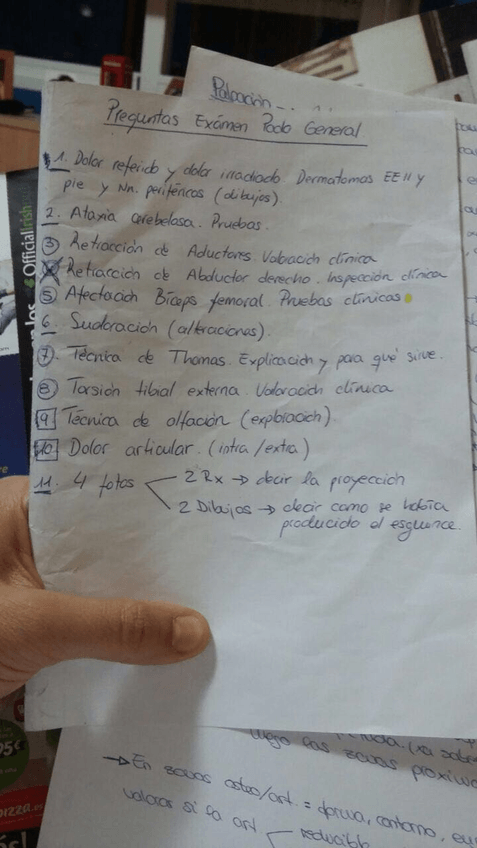 Palpación
Preguntas Exámen Podo General
1. Dolor referido y dolor irradiado. Dermatomas EEII y
pie y Nn. periféricos (dibujos).
2. Ataxia cerebelosa. Pruebas.
3 Retracción de Aductores. Valoración clínica
Retracción de Abductor derecho. Inspección clínica
5 Afectación Bíceps femoral. Pruebas clínicas
6. Sudoración (alteraciones).
7. Técnica de Thomas. Explicación y para qué sirve.
8 Torsión tibial externa. Valoración clínica
9 Técnica de olfación (exploración).
10. Dolor articular. (intra/extra)
11. 4 fotos
2 Rx → decir la proyección
2 Dibujos → decir como se habría
producido el esguince.
Official Irish
95€
pizza.es
luego las zonas proxim
→ En zonas osteo/art. = forma, contorno,
valorar si la art. reducible